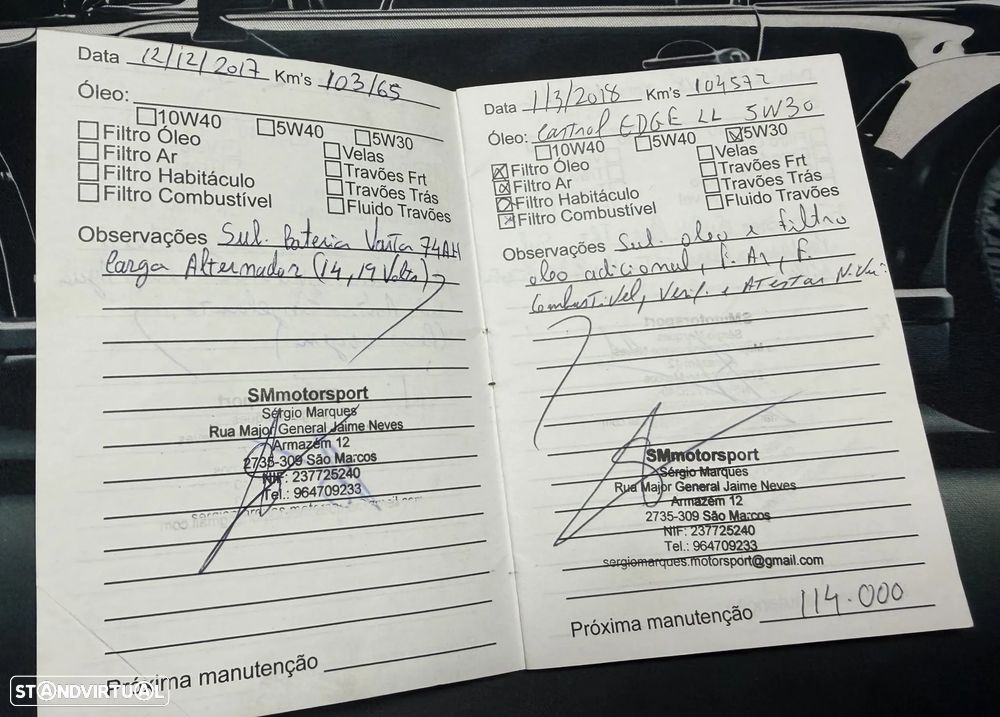 Data 12/12/2017 Km's 103165
Óleo:
10W40 5W40 5W30
Filtro Óleo
Filtro Ar
Filtro Habitáculo
Filtro Combustível
Velas
Travões Frt
Travões Trás
Fluido Travões
Observações Sul. Bateria Varta 74AH
Carga Alternador (14,19 Volts)
SMmotorsport
Sérgio Marques
Rua Major General Jaime Neves
Armazém 12
2735-309 São Marcos
NIF: 237725240
Tel.: 964709233
Próxima manutenção
Data 1/3/2018 Km's 104572
Óleo: Castrol EDGE LL 5W30
10W40 5W40 5W30
Filtro Óleo
Filtro Ar
Filtro Habitáculo
Filtro Combustível
Velas
Travões Frt
Travões Trás
Fluido Travões
Observações Sul. oleo e filtro
oleo adicional, F. Ar, F.
Combustivel, Verif. e Atestar
SMmotorsport
Sérgio Marques
Rua Major General Jaime Neves
Armazém 12
2735-309 São Marcos
NIF: 237725240
Tel.: 964709233
sergiomarques.motorsport@gmail.com
Próxima manutenção 114.000
STANDVIRTUAL